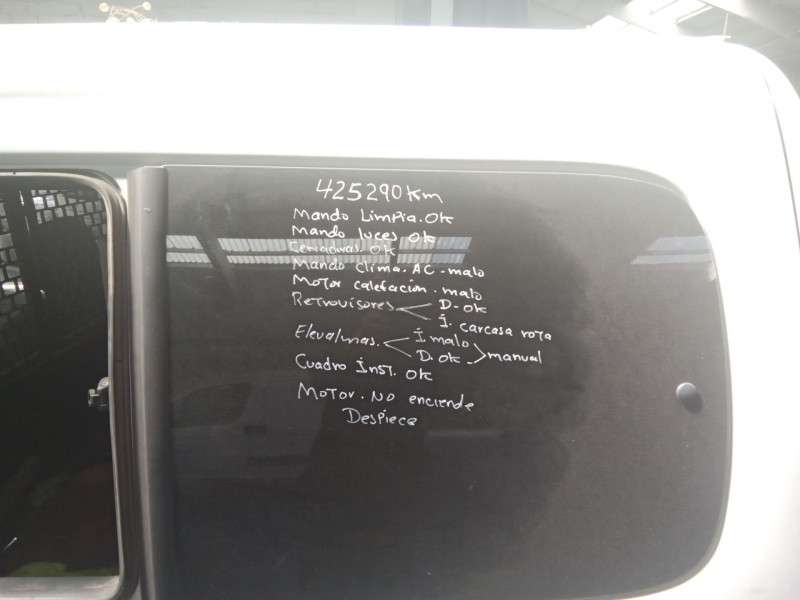 425290 Km
Mando Limpia. Ok
Mando luces Ok
Cerraduras. Ok
Mando clima. AC. malo
Motor calefacion. malo
Retrovisores D- ok
I. carcasa rota
Elevalunas. I. malo
D. ok manual
Cuadro Inst. Ok
Motor. No enciende
Despiece